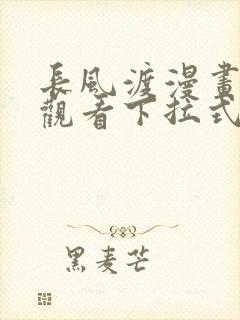 長風渡漫畫
觀看下拉式
黑麦芒